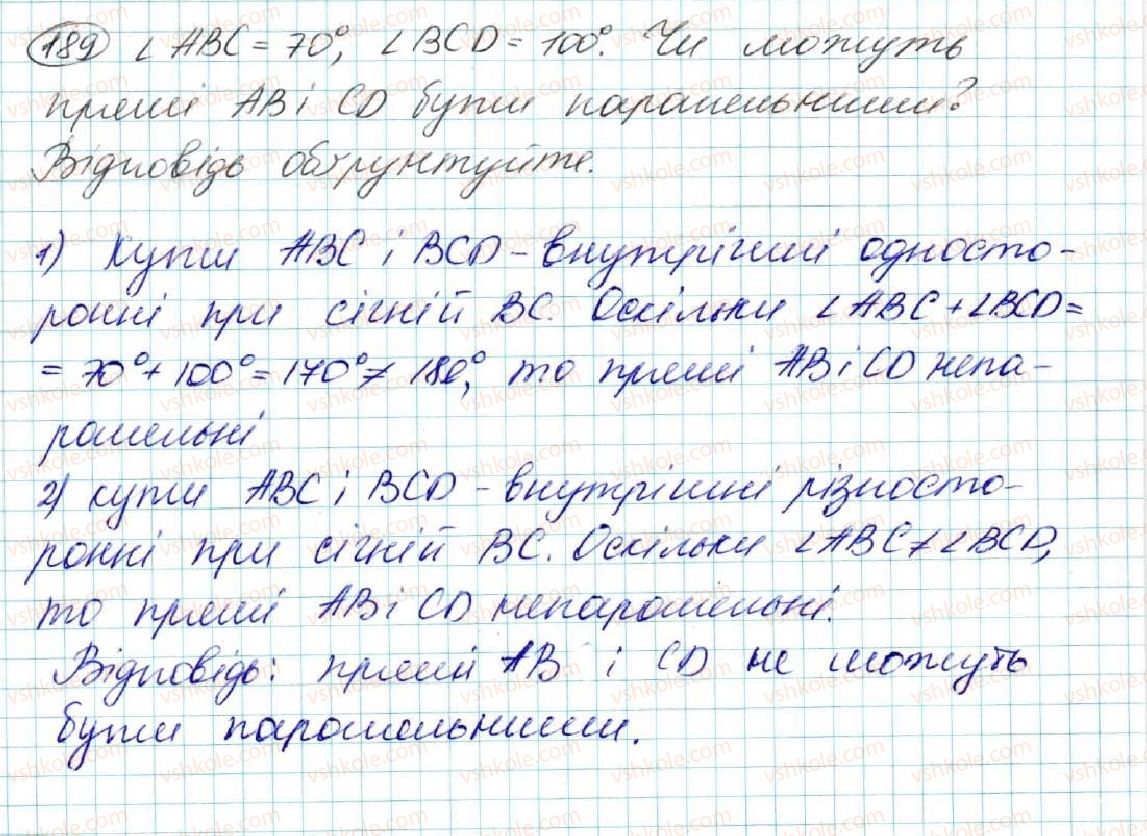 189 ∠ABC = 70°, ∠BCD = 100°. Чи можуть
прямі AB і CD бути паралельними?
Відповідь обґрунтуйте.
1) Кути ABC і BCD - внутрішні односто-
ронні при січній BC. Оскільки ∠ABC + ∠BCD =
= 70° + 100° = 170° ≠ 180°, то прямі AB і CD непа-
ралельні
2) кути ABC і BCD - внутрішні різносто-
ронні при січній BC. Оскільки ∠ABC ≠ ∠BCD,
то прямі AB і CD непаралельні.
Відповідь: прямі AB і CD не можуть
бути паралельними.
vshkole.com